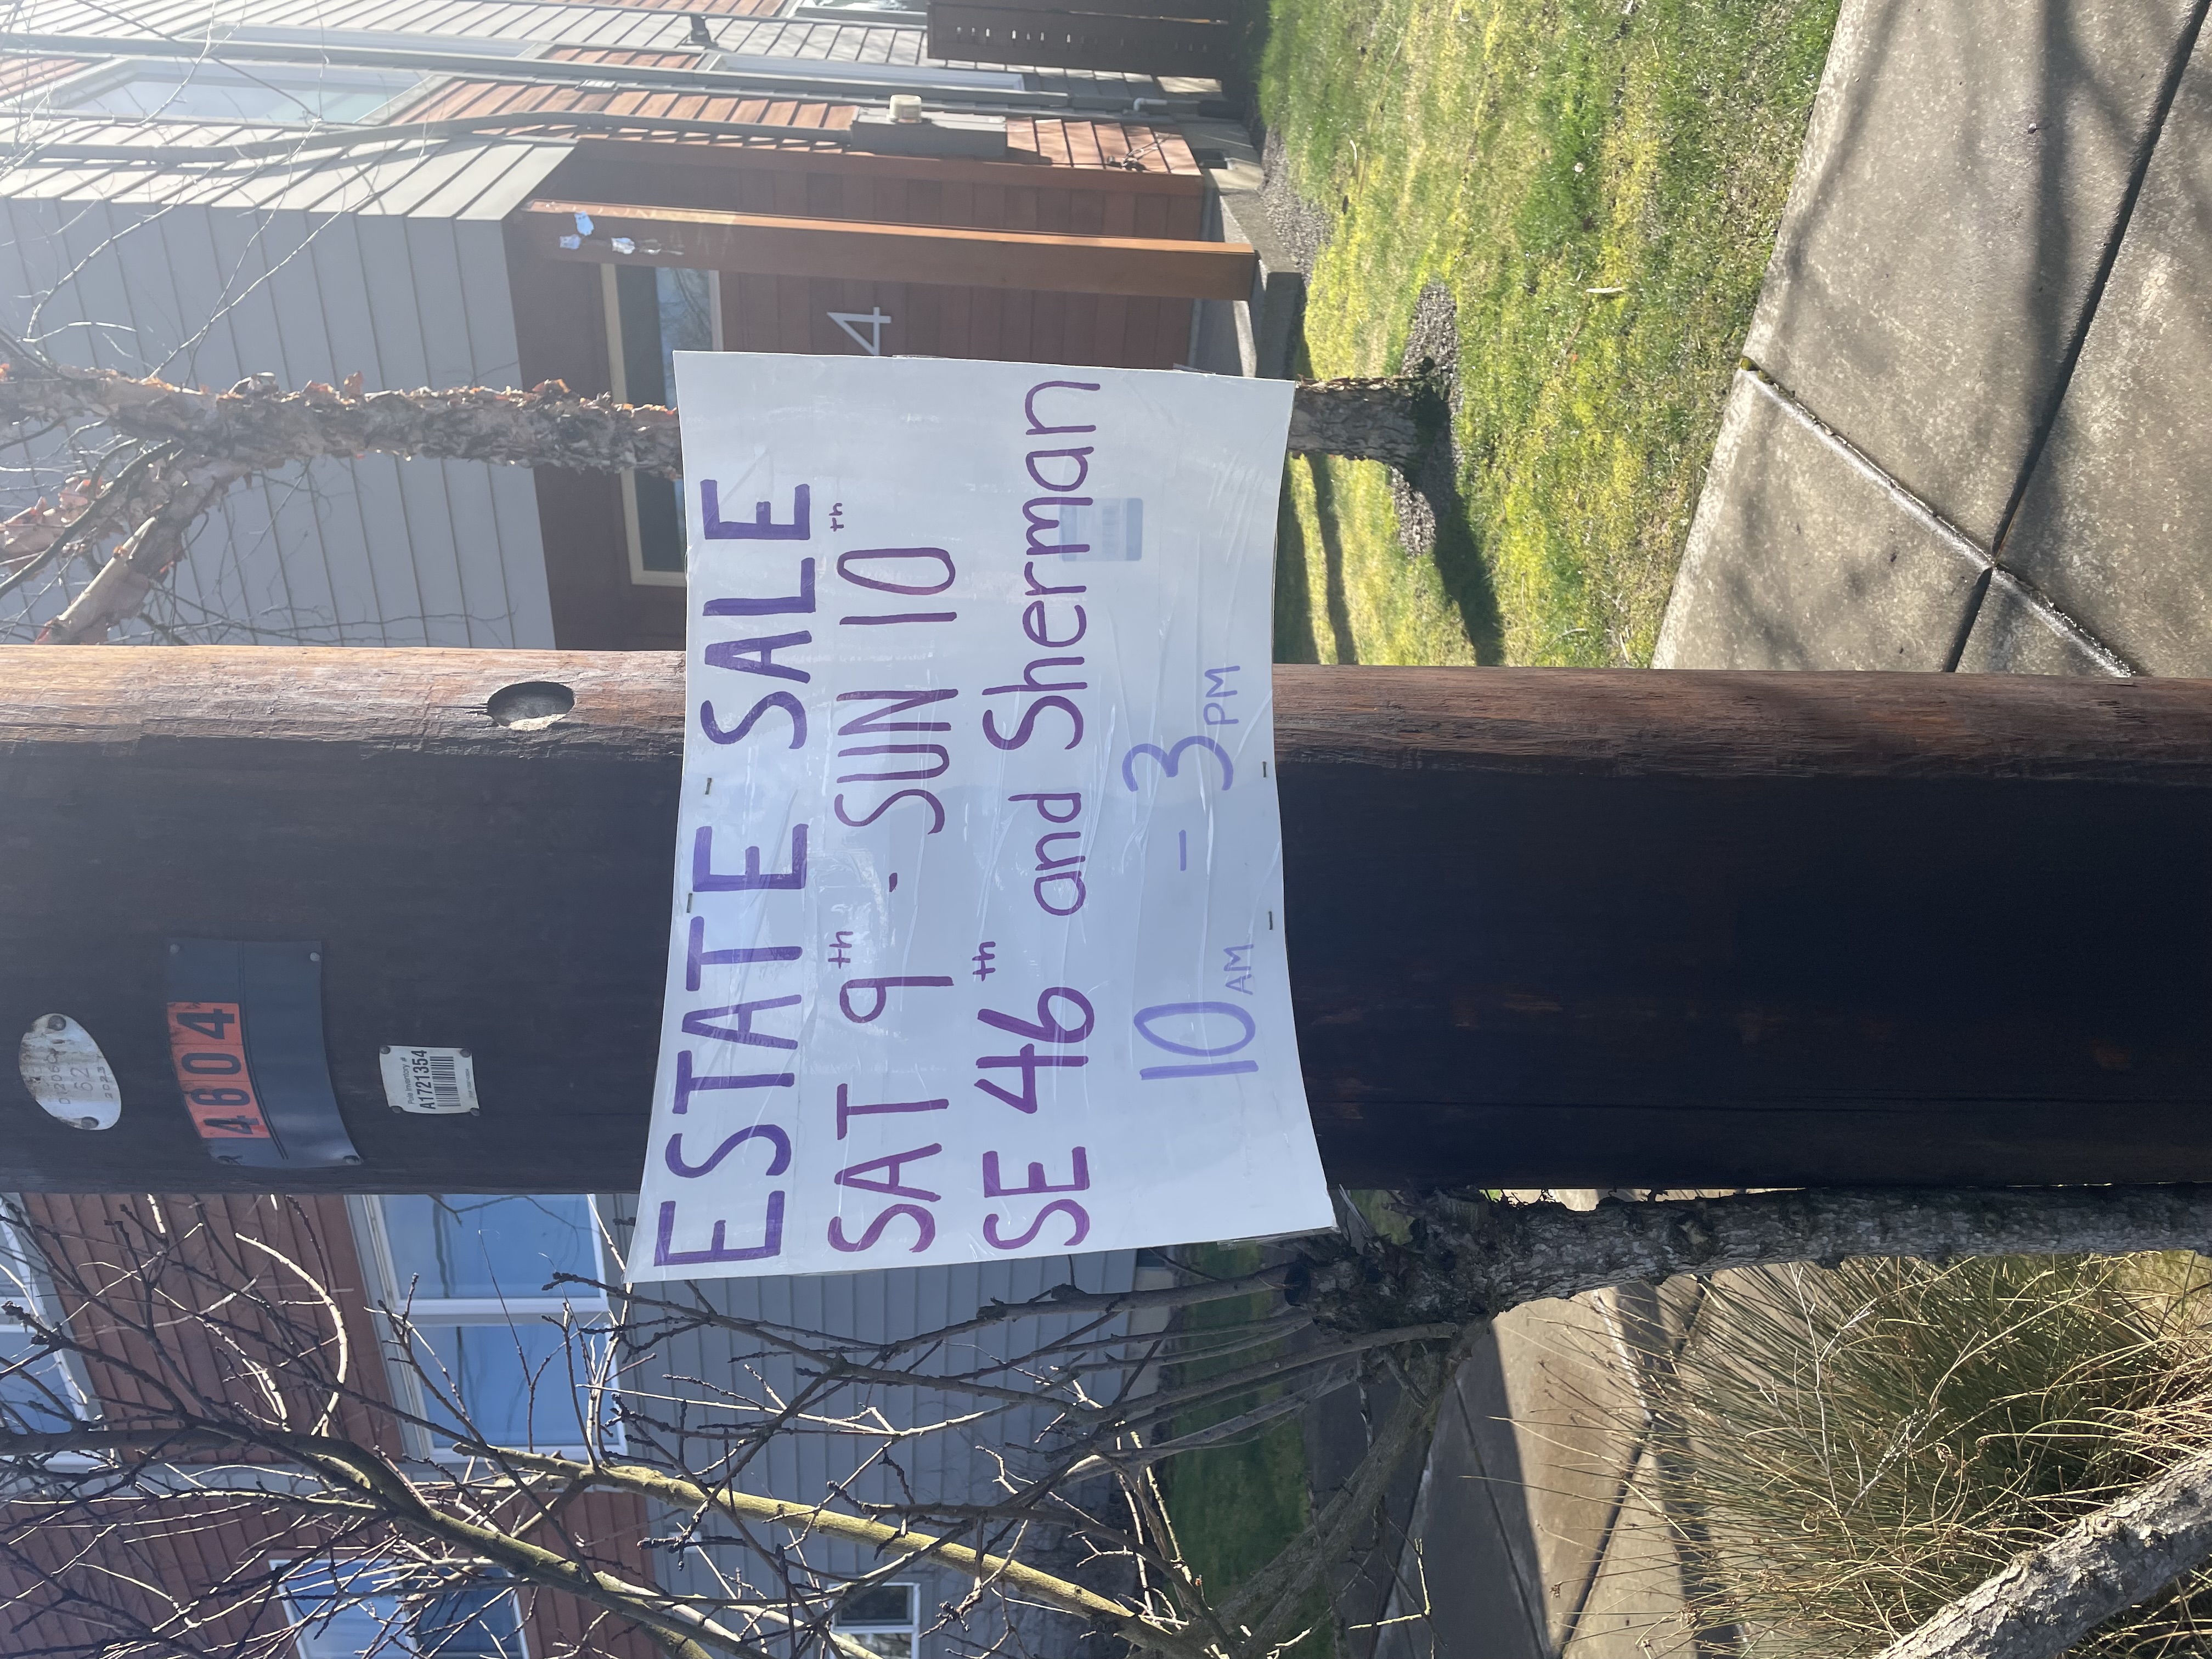 62
2023
4604
Pole Inventory #
A1721354
ESTATE SALE
SAT 9th - SUN 10th
4
SE 46th and Sherman
10 AM - 3 PM